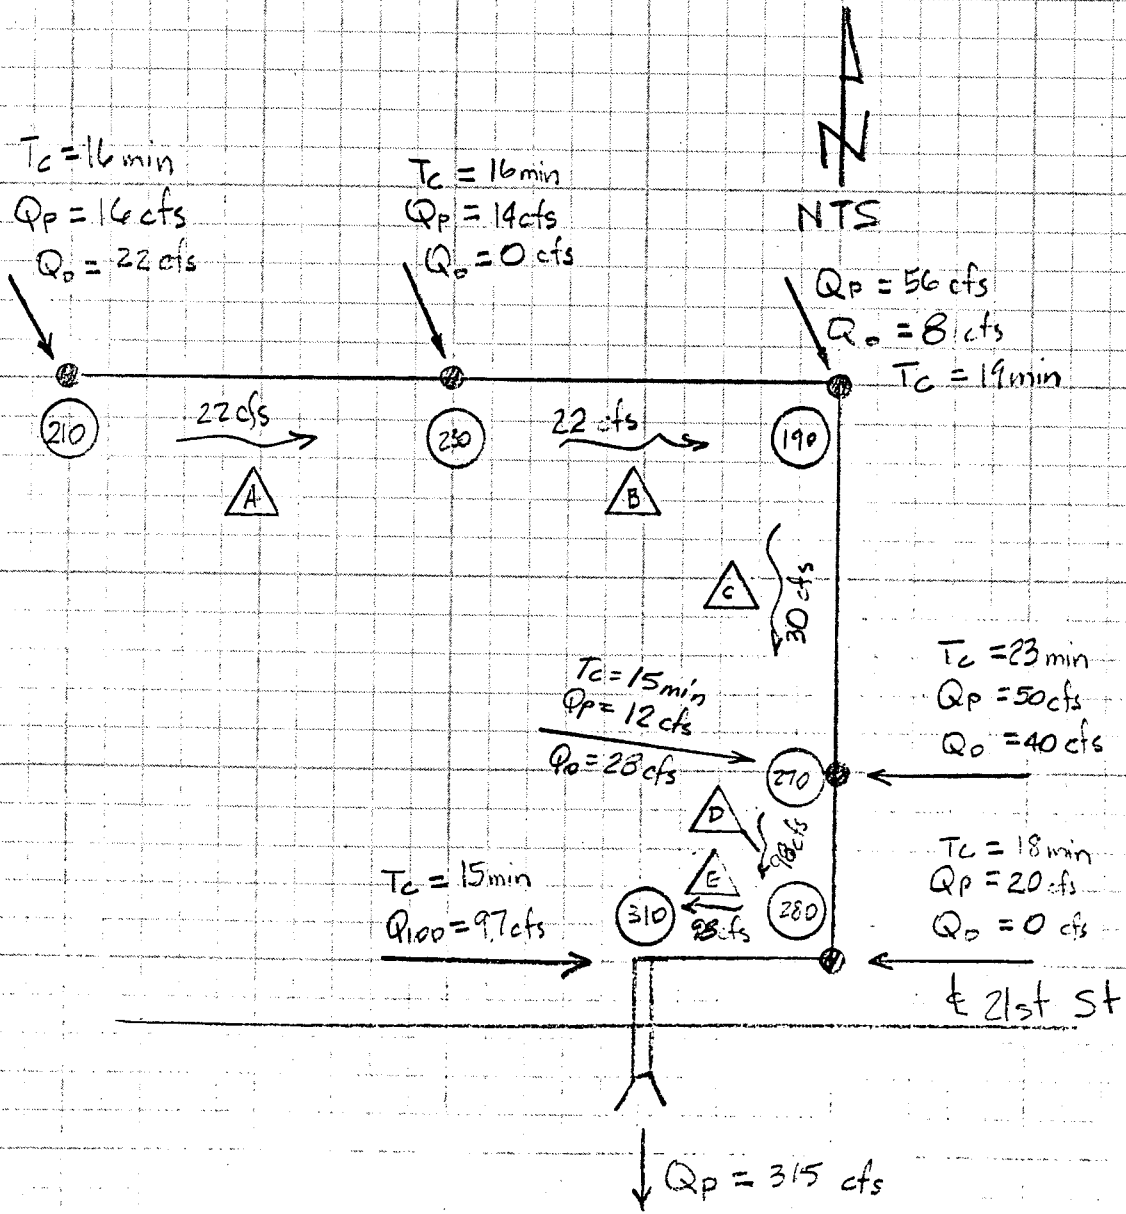 Tc = 16 min
Qp = 16 cfs
Qo = 22 cfs
Tc = 16 min
Qp = 14 cfs
Qo = 0 cfs
N
NTS
Qp = 56 cfs
Qo = 8 cfs
Tc = 19 min
210
22 cfs
A
230
22 cfs
B
190
C
30 cfs
Tc = 15 min
Qp = 12 cfs
Qo = 28 cfs
270
Tc = 23 min
Qp = 50 cfs
Qo = 40 cfs
D
98 cfs
E
98 cfs
Tc = 15 min
Q100 = 97 cfs
310
280
Tc = 18 min
Qp = 20 cfs
Qo = 0 cfs
℄ 21st St
Qp = 315 cfs